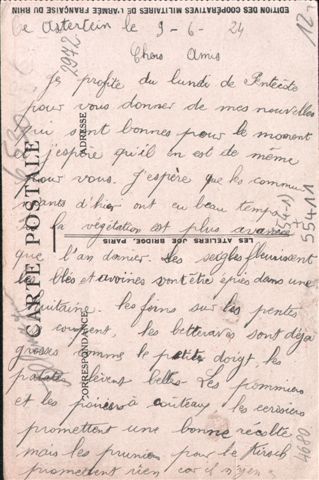 EDITION DES COOPÉRATIVES MILITAIRES DE L'ARMÉE FRANÇAISE DU RHIN
12
Asterstein le 9-6-24
2942
Chers Amis
Je profite du lundi de Pentecôte
pour vous donner de mes nouvelles
qui sont bonnes pour le moment
j'espère qu'il en est de même
pour vous. J'espère que les commu
iants d'hier ont eu beau temps
la végétation est plus avancée
que l'an dernier. les seigles fleurissent
les blés et avoines sont être épiés dans une
quitaine. les foins sur les pentes
se coupent. les betteraves sont déja
grosses comme le petit doigt, les
lèvent belles. Les pommiers
et les poiriers à couteaux les cerisiers
promettent une bonne récolte
mais les pruniers pour le Kirsch
promettent rien car il n'y en a
CARTE POSTALE
ADRESSE
CORRESPONDANCE
LES ATELIERS JOE BRIDGE, PARIS
55411
4680